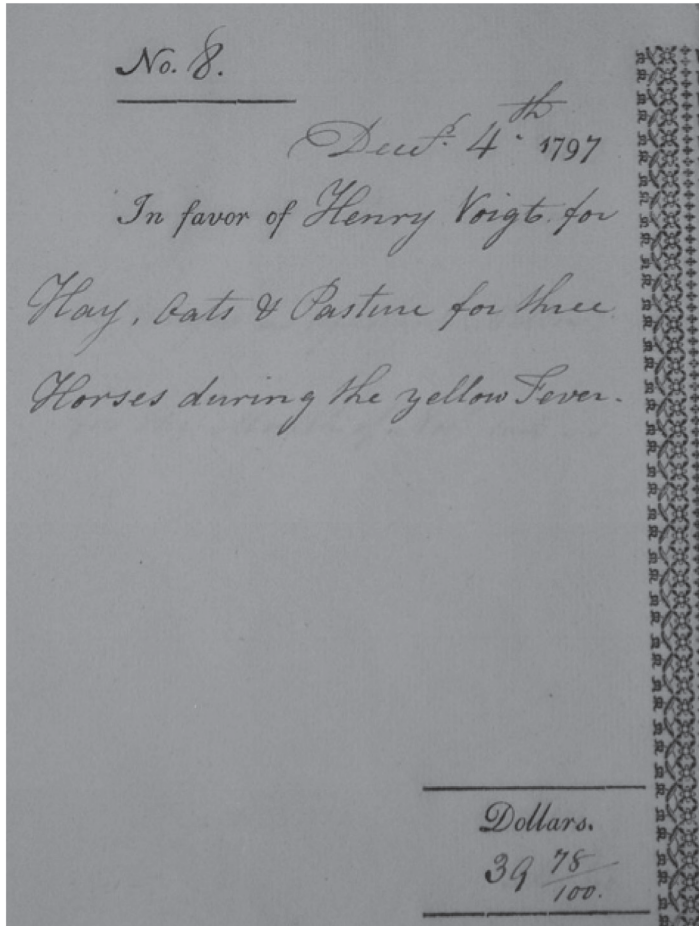 No. 8.
Decr. 4th. 1797
In favor of Henry Voigt for
Hay, Oats & Pasture for three
Horses during the yellow Fever.
Dollars.
39 78/100.